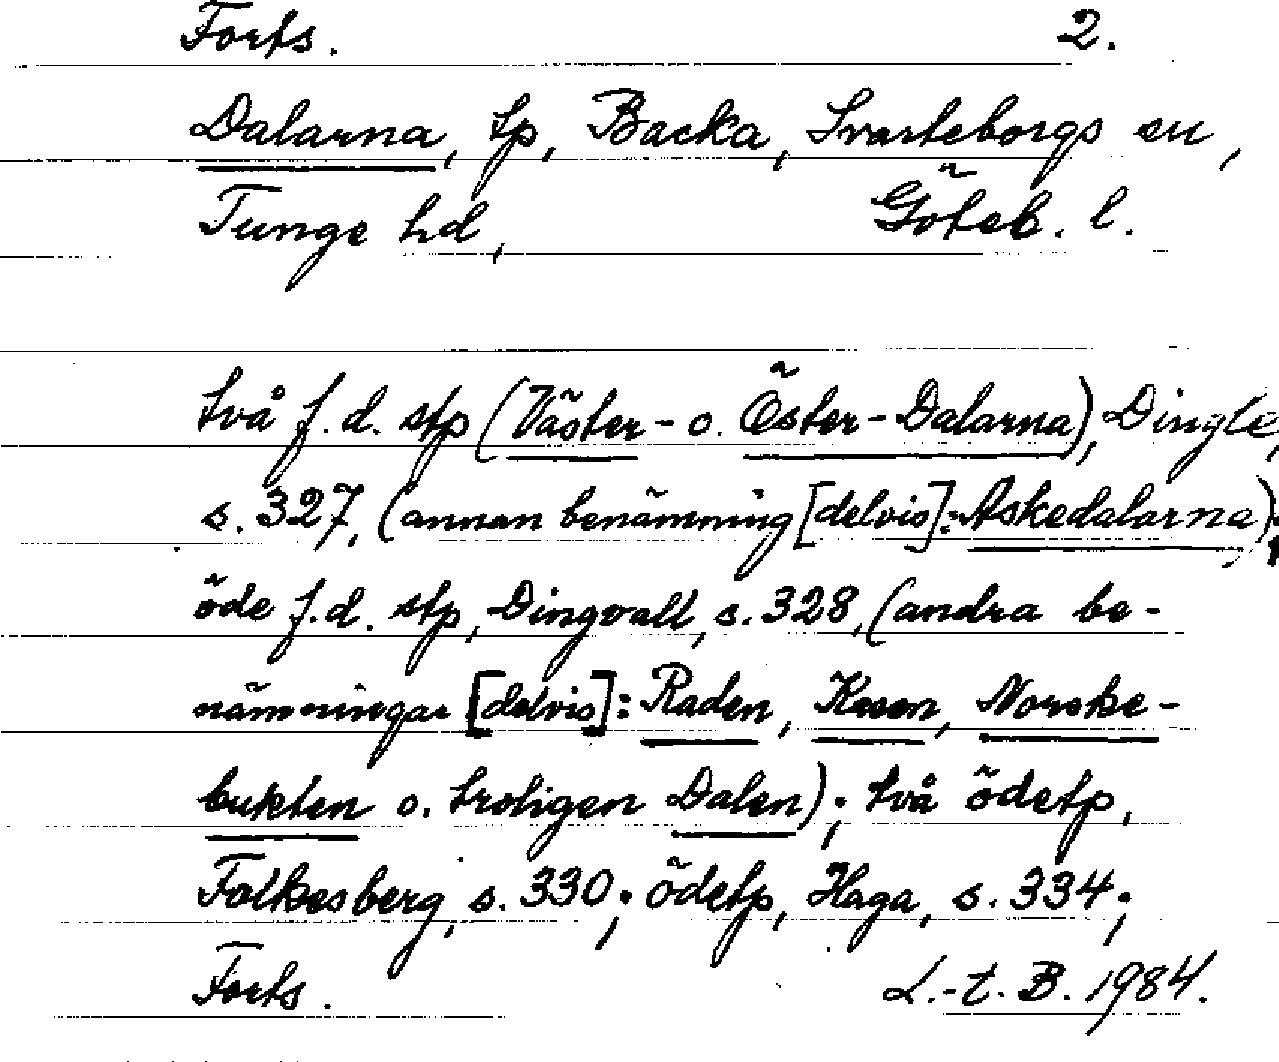 Forts. 2.
Dalarna, tp, Backa, Svarteborgs sn,
Tunge hd, Göteb. l.
två f.d. stp (Väster- o. Öster-Dalarna), Dingle,
s. 327, (annan benämning [delvis]: Askedalarna);
öde f.d. stp, Dingvall, s. 328, (andra be-
nämningar [delvis]: Raden, Kasen, Norske-
bukten o. troligen Dalen); två ödetp,
Folkesberg, s. 330; ödetp, Haga, s. 334;
Forts. L.-t. B. 1984.